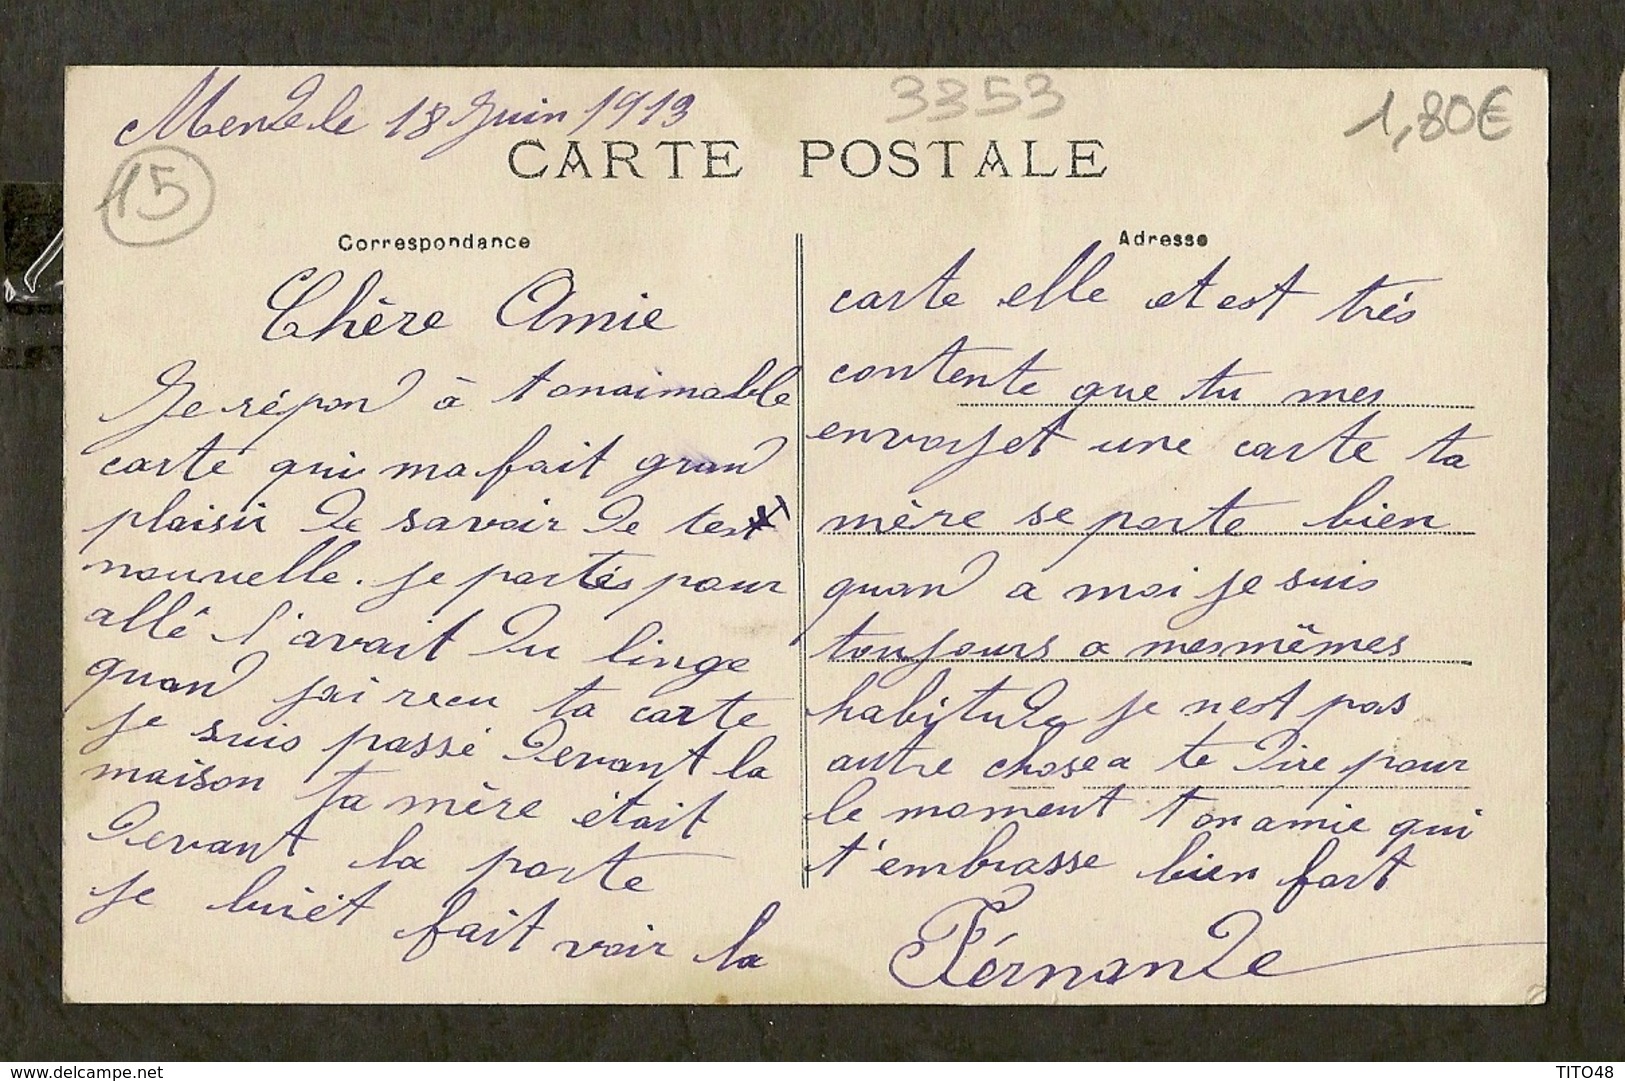 Mende le 18 Juin 1913
3353
1,80€
15
CARTE POSTALE
Correspondance
Chère Amie
Je répond à tonaimable
carte qui ma fait grand
plaisir de savoir de tes
nouvelle. je portés pour
allê l'avait du linge
quand jai recu ta carte
je suis passé devant la
maison ta mère était
devant la porte
je luiét fait voir la
Adresse
carte elle et est trés
contente que tu mes
envoyet une carte ta
mère se porte bien
quand a moi je suis
toujours a mesmêmes
habitude je nest pas
autre chose a te dire pour
le moment ton amie qui
t'embrasse bien fort
Férnande
delcampe.net
TITO48